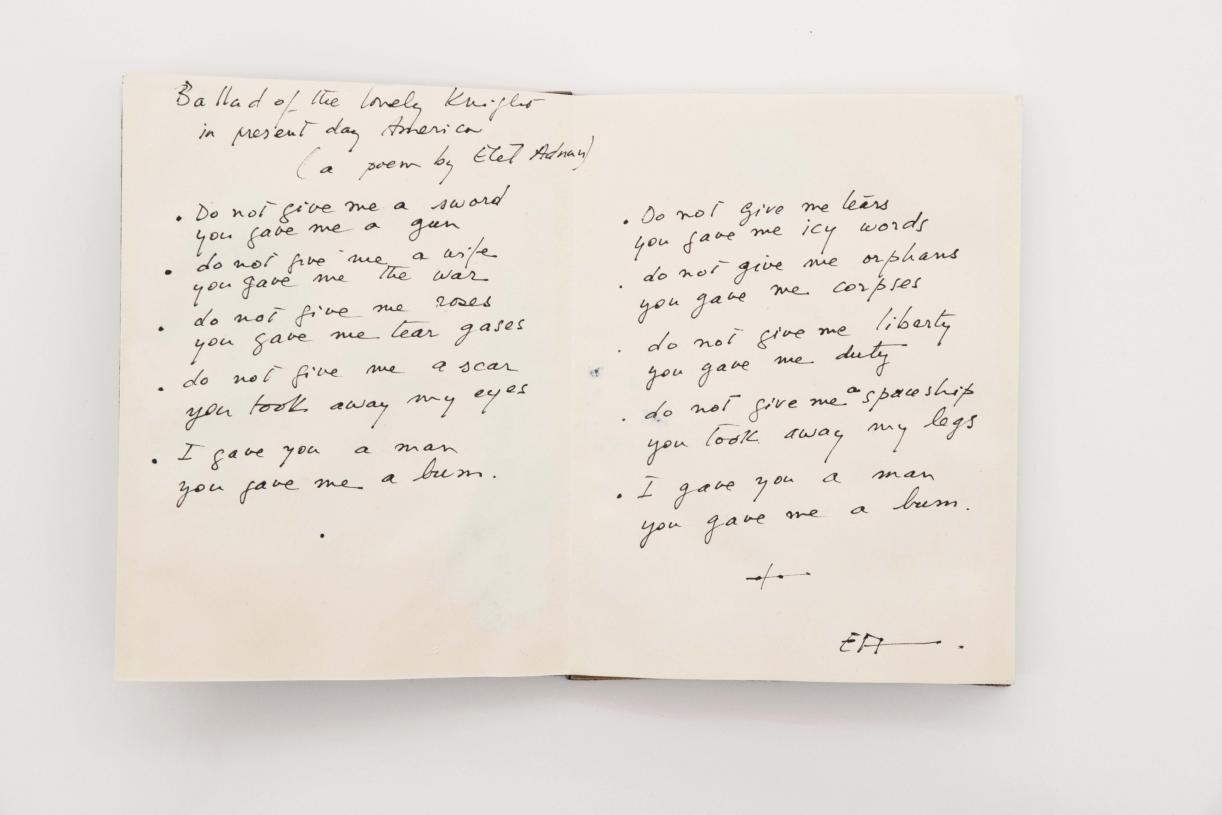 Ballad of the lonely Knight
in present day America
(a poem by Etel Adnan)
• Do not give me a sword
you gave me a gun
• do not give me a wife
you gave me the war
• do not give me roses
you gave me tear gases
• do not give me a scar
you took away my eyes
• I gave you a man
you gave me a bum.
• Do not give me tears
you gave me icy words
• do not give me orphans
you gave me corpses
• do not give me liberty
you gave me duty
• do not give me a spaceship
you took away my legs
• I gave you a man
you gave me a bum.
EA